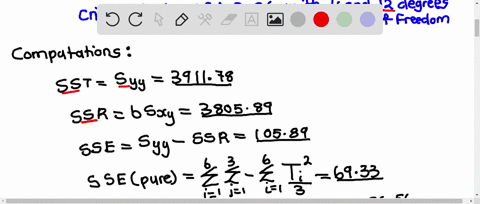 Cri with 4 and 12 degrees
of Freedom
Computations:
SST = Syy = 3911.78
SSR = bSxy = 3805.89
SSE = Syy - SSR = 105.89
SSE (pure) = 6 Σ i=1 3 Σ j=1 - 6 Σ i=1 Ti² / 3 = 69.33